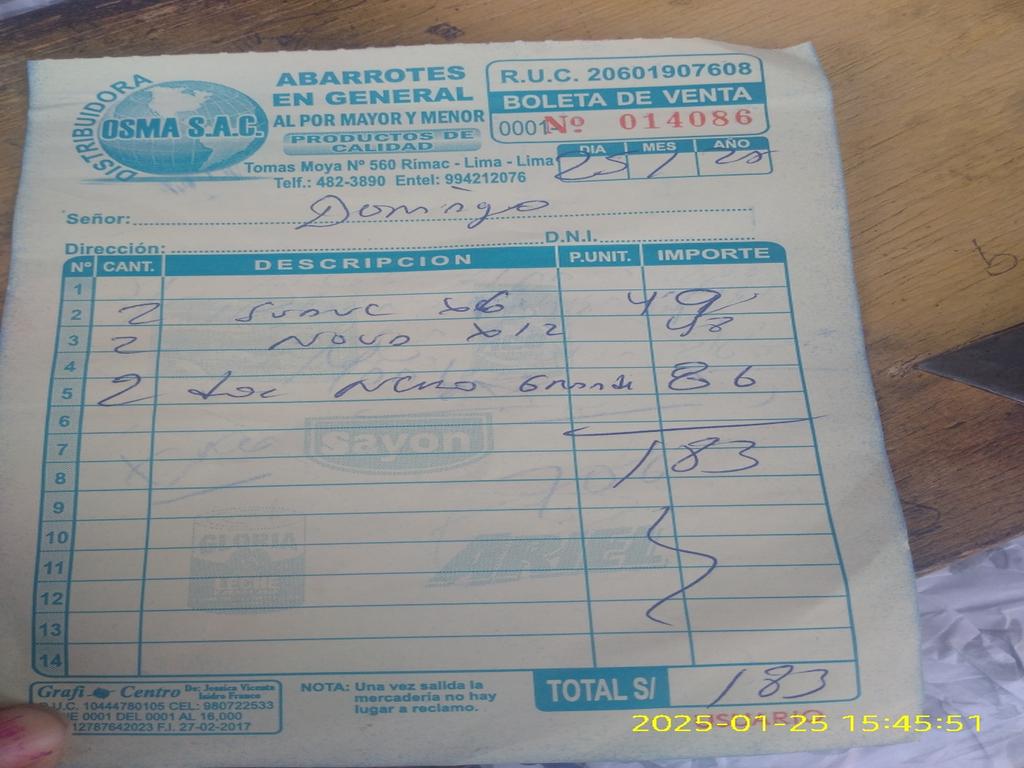 DISTRIBUIDORA
OSMA S.A.C.
ABARROTES
EN GENERAL
AL POR MAYOR Y MENOR
PRODUCTOS DE
CALIDAD
Tomas Moya Nº 560 Rímac - Lima - Lima
Telf.: 482-3890 Entel: 994212076
R.U.C. 20601907608
BOLETA DE VENTA
0001-Nº 014086
DIA MES AÑO
25 1 25
Señor: Domingo
Dirección: D.N.I.
Nº CANT. DESCRIPCION P.UNIT. IMPORTE
1
2 2 x6 49
3 2 NOVO x12 48
4
5 2 86
6
7 183
8
9
10
11
12
13
14
sayon
GLORIA
LECHE
ARIEL
Grafi Centro De: Jessica Vicente
Isidro Franco
R.U.C. 10444780105 CEL: 980722533
0001 DEL 0001 AL 16,000
12787642023 F.I. 27-02-2017
NOTA: Una vez salida la
mercadería no hay
lugar a reclamo.
TOTAL S/ 183
USUARIO
2025-01-25 15:45:51